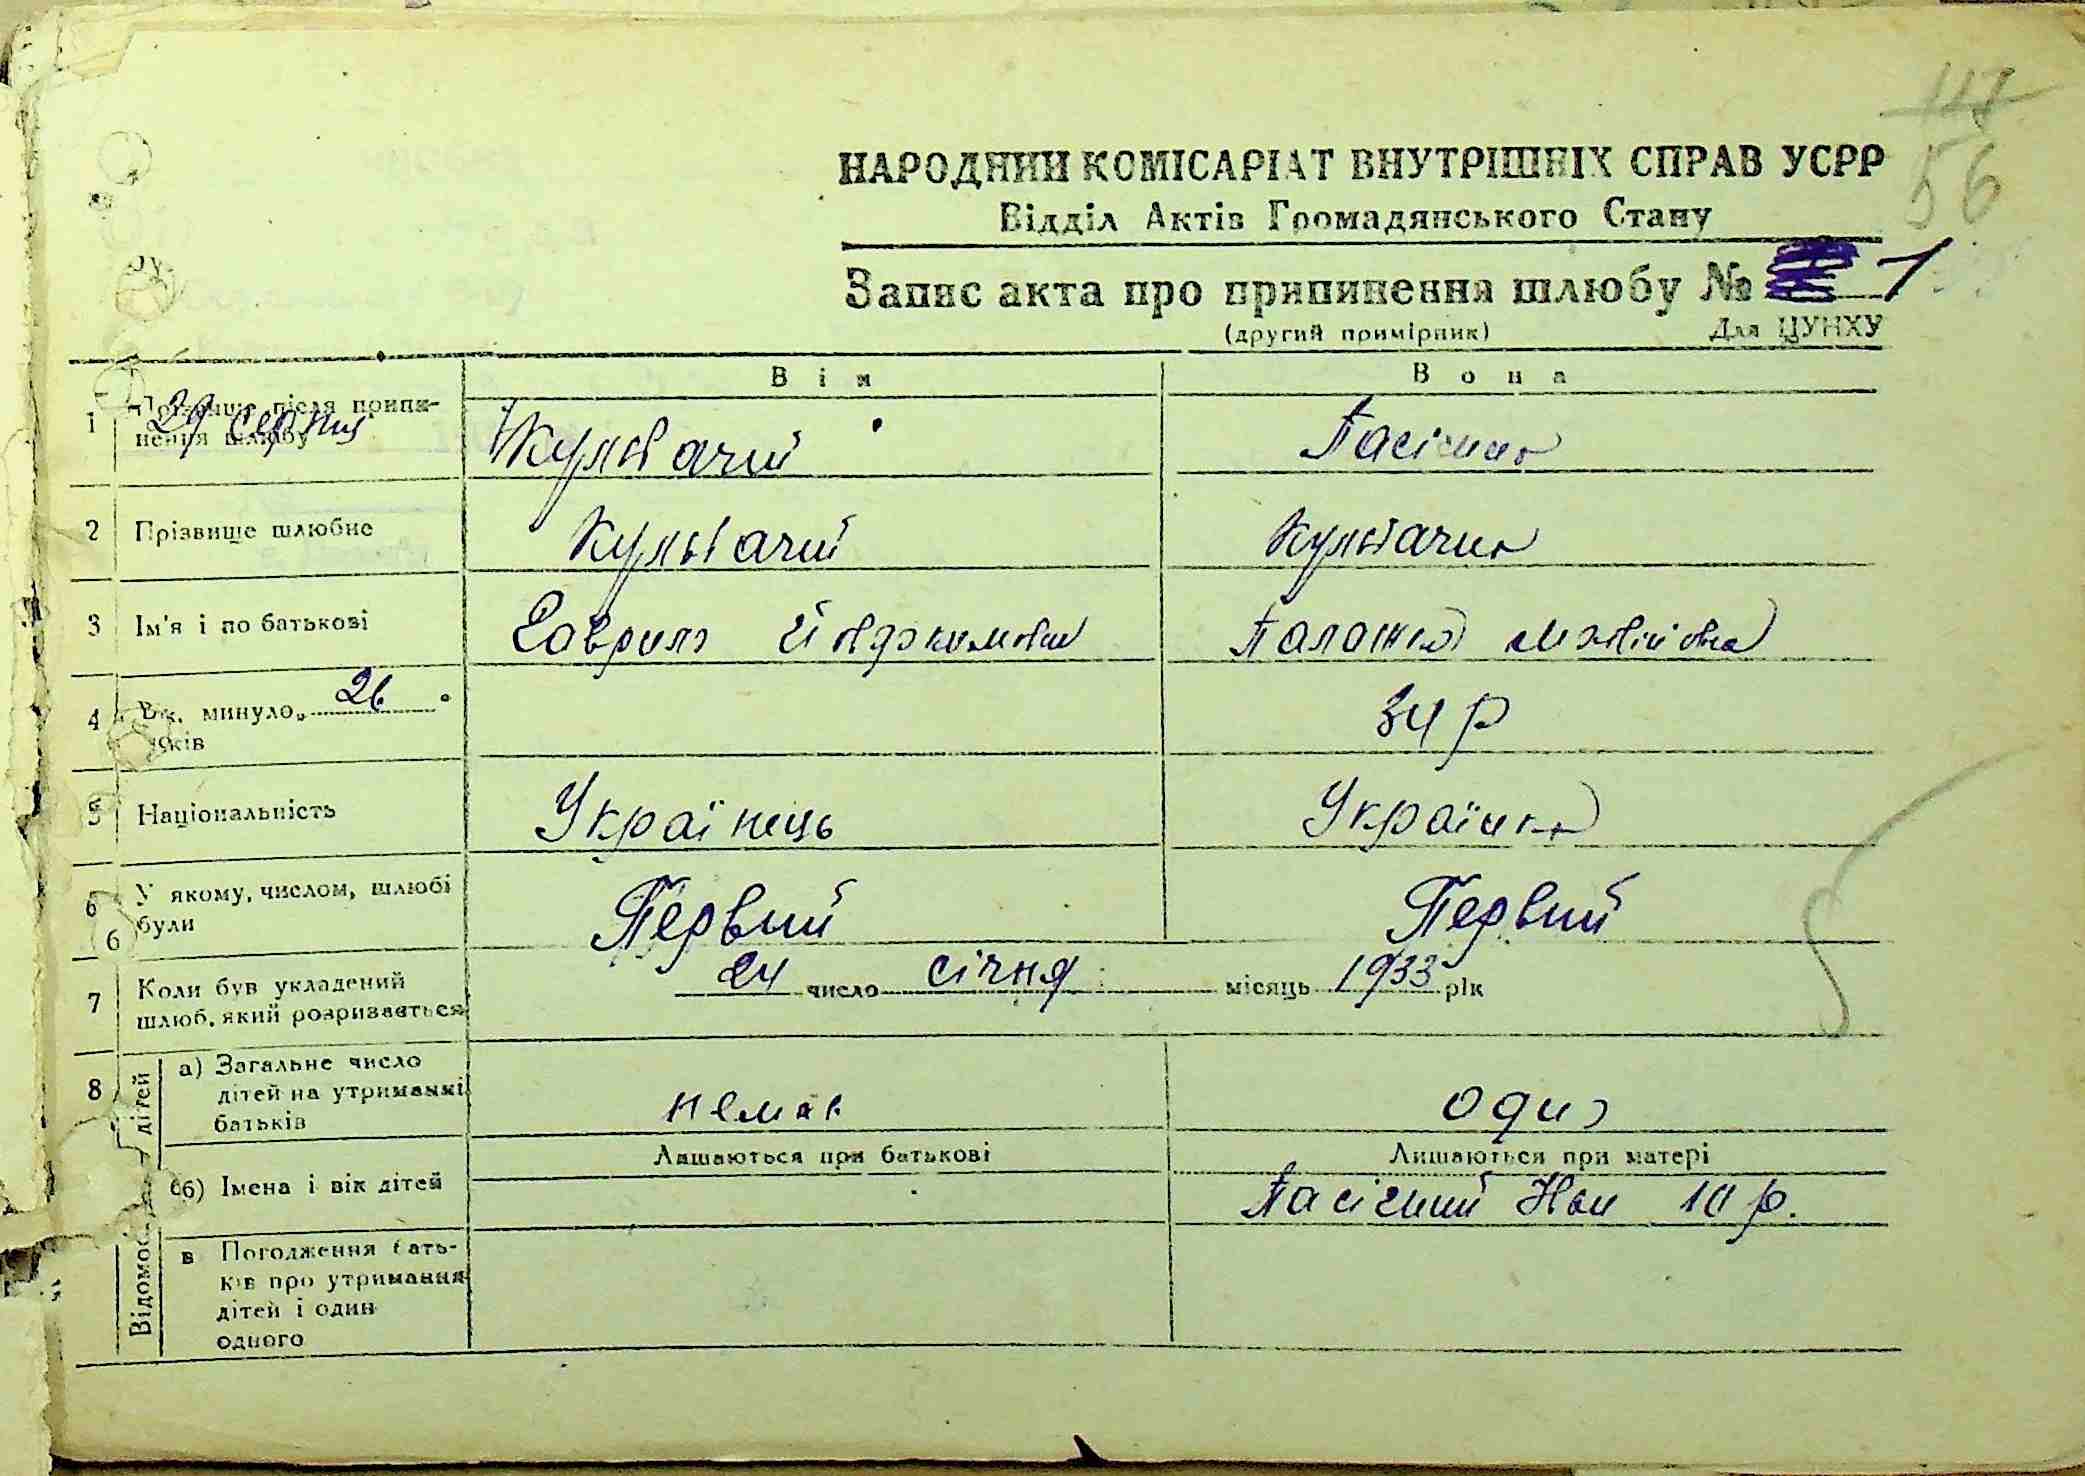 117
56
НАРОДНИЙ КОМІСАРІАТ ВНУТРІШНІХ СПРАВ УСРР
Відділ Актів Громадянського Стану
Запис акта про припинення шлюбу № 1
(другий примірник) Для ЦУНХУ
Він Вона
1 Прізвище після припинення шлюбу 29 серпня Кульбачий Пасічна
2 Прізвище шлюбне Кульбачий Кульбачия
3 Ім'я і по батькові Гаврило Йовдокимович Палажка Матвійовна
4 Вік, минуло 26 років 34 р
5 Національність Українець Українка
6 У якому, числом, шлюбі були Первий Первий
6
7 Коли був укладений шлюб, який розривається 24 число січня місяць 1933 рік
8 Відомос. дітей
а) Загальне число дітей на утриманні батьків немає один
Лишаються при батькові Лишаються при матері
б) Імена і вік дітей Пасічний 10 р.
в Погодження батьків про утримання дітей і один одного